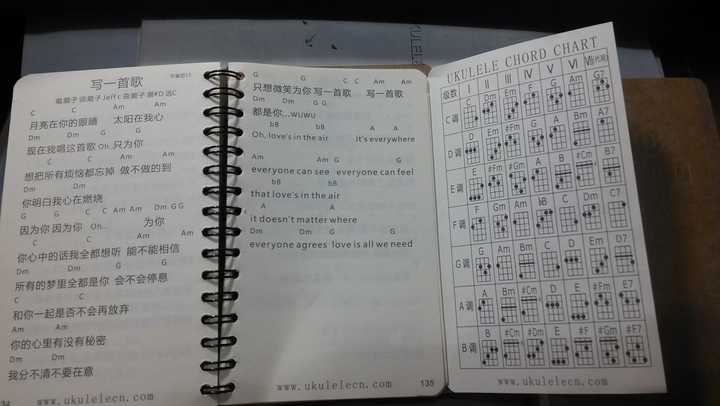 写一首歌
C C Am Am
月亮在你的眼睛 太阳在我心
Dm Dm G G
现在我唱这首歌 Oh,只为你
C C Am Am
想把所有烦恼都忘掉 做不做的到
Dm Dm G G
你明白我心在燃烧
G G C C Am Am Dm G G
因为你 因为你 Oh... 为你
C C Am Am
你心中的话我全都想听 能不能相信
Dm Dm G G
所有的梦里全都是你 会不会停息
C C
和你一起是否不会再放弃
Am Am
你的心里有没有秘密
Dm Dm
我分不清不要在意
www.ukulelecn.com
G G C C Am Am
只想微笑为你 写一首歌 写一首歌
Dm Dm G G
都是你...wuwu
bB bB A A
Oh, love's in the air it's everywhere
Am Am G G
everyone can see everyone can feel
bB bB
that love's in the air
A A
it doesn't matter where
Dm Dm G G
everyone agrees love is all we need
www.ukulelecn.com 135
UKULELE CHORD CHART
级数 I II III IV V VI VII(代用)
C调 C Dm Em F G Am G7
D调 D Em #Fm G A Bm A7
E调 E #Fm #Gm A B #Cm B7
F调 F Gm Am bB C Dm C7
G调 G Am Bm C D Em D7
A调 A Bm #Cm D E #Fm E7
B调 B #Cm #Dm E #F #Gm #F7
www.ukulelecn.com